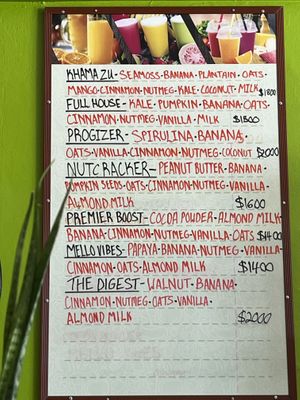 KHAMAZU - SEAMOSS · BANANA · PLANTAIN · OATS ·
MANGO · CINNAMON · NUTMEG · KALE · COCONUT · MILK $1800
FULL HOUSE - KALE · PUMPKIN · BANANA · OATS ·
CINNAMON · NUTMEG · VANILLA · MILK $1500
PROGIZER - SPIRULINA · BANANA ·
OATS · VANILLA · CINNAMON · NUTMEG · COCONUT $2000
NUTCRACKER - PEANUT BUTTER · BANANA ·
PUMPKIN SEEDS · OATS · CINNAMON · NUTMEG · VANILLA ·
ALMOND MILK $1600
PREMIER BOOST - COCOA POWDER · ALMOND MILK
BANANA · CINNAMON · NUTMEG · VANILLA · OATS $1400
MELLO VIBES - PAPAYA · BANANA · NUTMEG · VANILLA ·
CINNAMON · OATS · ALMOND MILK $1400
THE DIGEST - WALNUT · BANANA ·
CINNAMON · NUTMEG · OATS · VANILLA ·
ALMOND MILK $2000